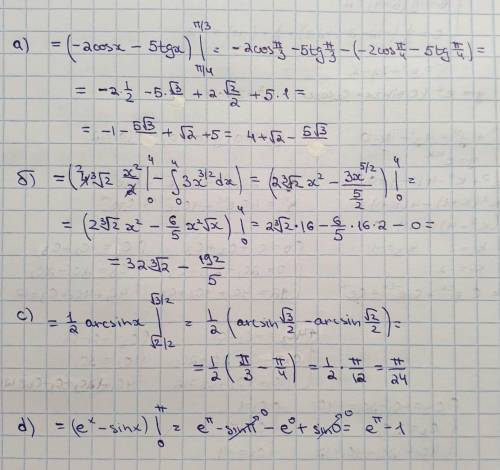 а) = (-2cosx - 5tgx) |_{π/4}^{π/3} = -2cos π/3 - 5tg π/3 - (-2cos π/4 - 5tg π/4) =
= -2·1/2 - 5·√3 + 2·√2/2 + 5·1 =
= -1 - 5√3 + √2 + 5 = 4 + √2 - 5√3
б) = (4∛2 x²/2 |_0^4 - ∫_0^4 3x^{3/2} dx) = (2∛2 x² - 3x^{5/2}/(5/2)) |_0^4 =
= (2∛2 x² - 6/5 x²√x) |_0^4 = 2∛2·16 - 6/5·16·2 - 0 =
= 32∛2 - 192/5
c) = 1/2 arcsinx |_{√2/2}^{√3/2} = 1/2 (arcsin √3/2 - arcsin √2/2) =
= 1/2 (π/3 - π/4) = 1/2 · π/12 = π/24
d) = (e^x - sinx) |_0^π = e^π - sinπ - e^0 + sin0 = e^π - 1